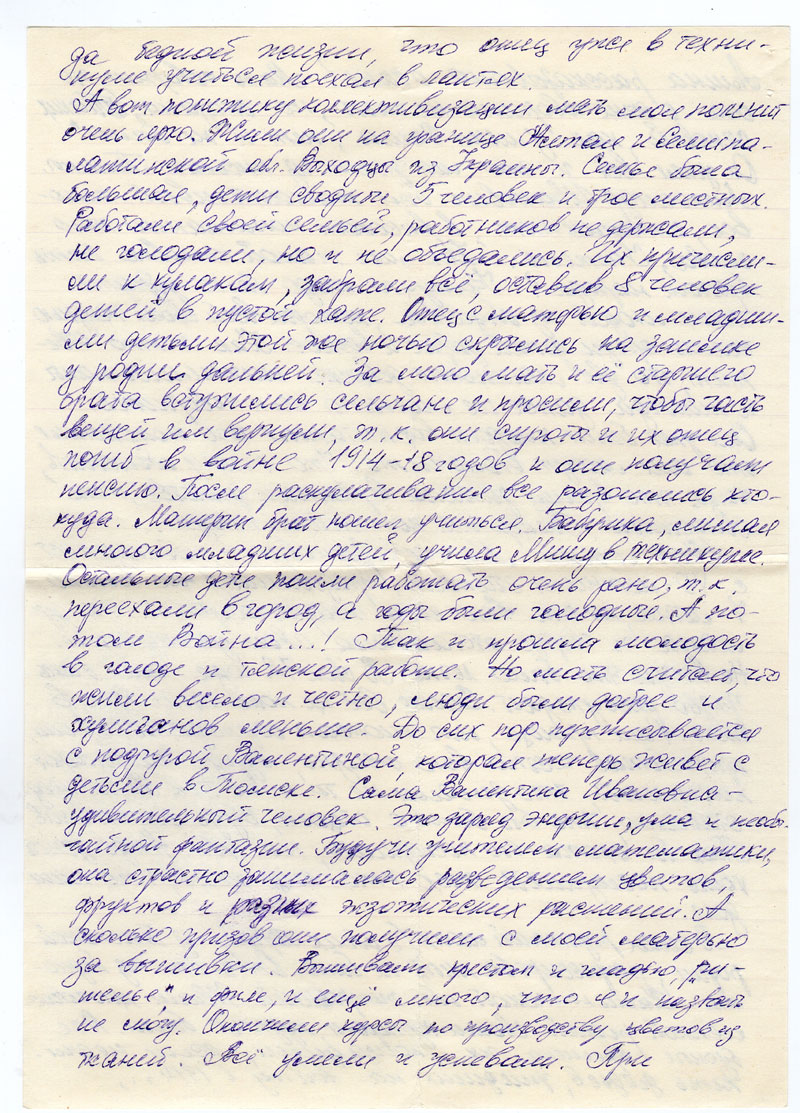 да бедной жизни, что отец уже в техни-
куме учиться поехал в лаптях.
А вот политику коллективизации мать моя помнит
очень ярко. Жили они на границе Алтая и Семипа-
латинской обл. Выходцы из Украины. Семья была
большая, дети сводные 5 человек и трое местных.
Работали своей семьёй, работников не держали,
не голодали, но и не объедались. Их причисли-
ли к кулакам, забрали всё, оставив 8 человек
детей в пустой хате. Отец с матерью и младши-
ми детьми этой же ночью скрылись на заимке
у родни дальней. За мою мать и её старшего
брата вступились сельчане и просили, чтобы часть
вещей им вернули, т.к. они сироты и их отец
погиб в войне 1914-18 годов и они получали
пенсию. После раскулачивания все разошлись кто-
куда. Матери брат пошёл учиться. Бабушка,
много младших детей, учила в техникуме.
Остальные дети пошли работать очень рано, т.к.
переехали в город, а годы были голодные. А по-
том Война...! Так и прошла молодость
в голоде и тяжской работе. Но мать считает, что
жили весело и честно, люди были добрее и
хулиганов меньше. До сих пор переписывается
с подругой Валентиной, которая теперь живёт с
детьми в Томске. Сама Валентина Ивановна -
удивительный человек. Это заряд энергии, ума и необы-
чайной фантазии. Будучи учителем математики,
она страстно занималась разведением цветов,
фруктов и разных экзотических растений. А
сколько призов они получили с моей матерью
за вышивки. Вышивали крестом и гладью, "ри-
шелье" и филе, и ещё много, что я и назвать
не могу. Окончили курсы по производству цветов из
тканей. Всё умели и успевали. При